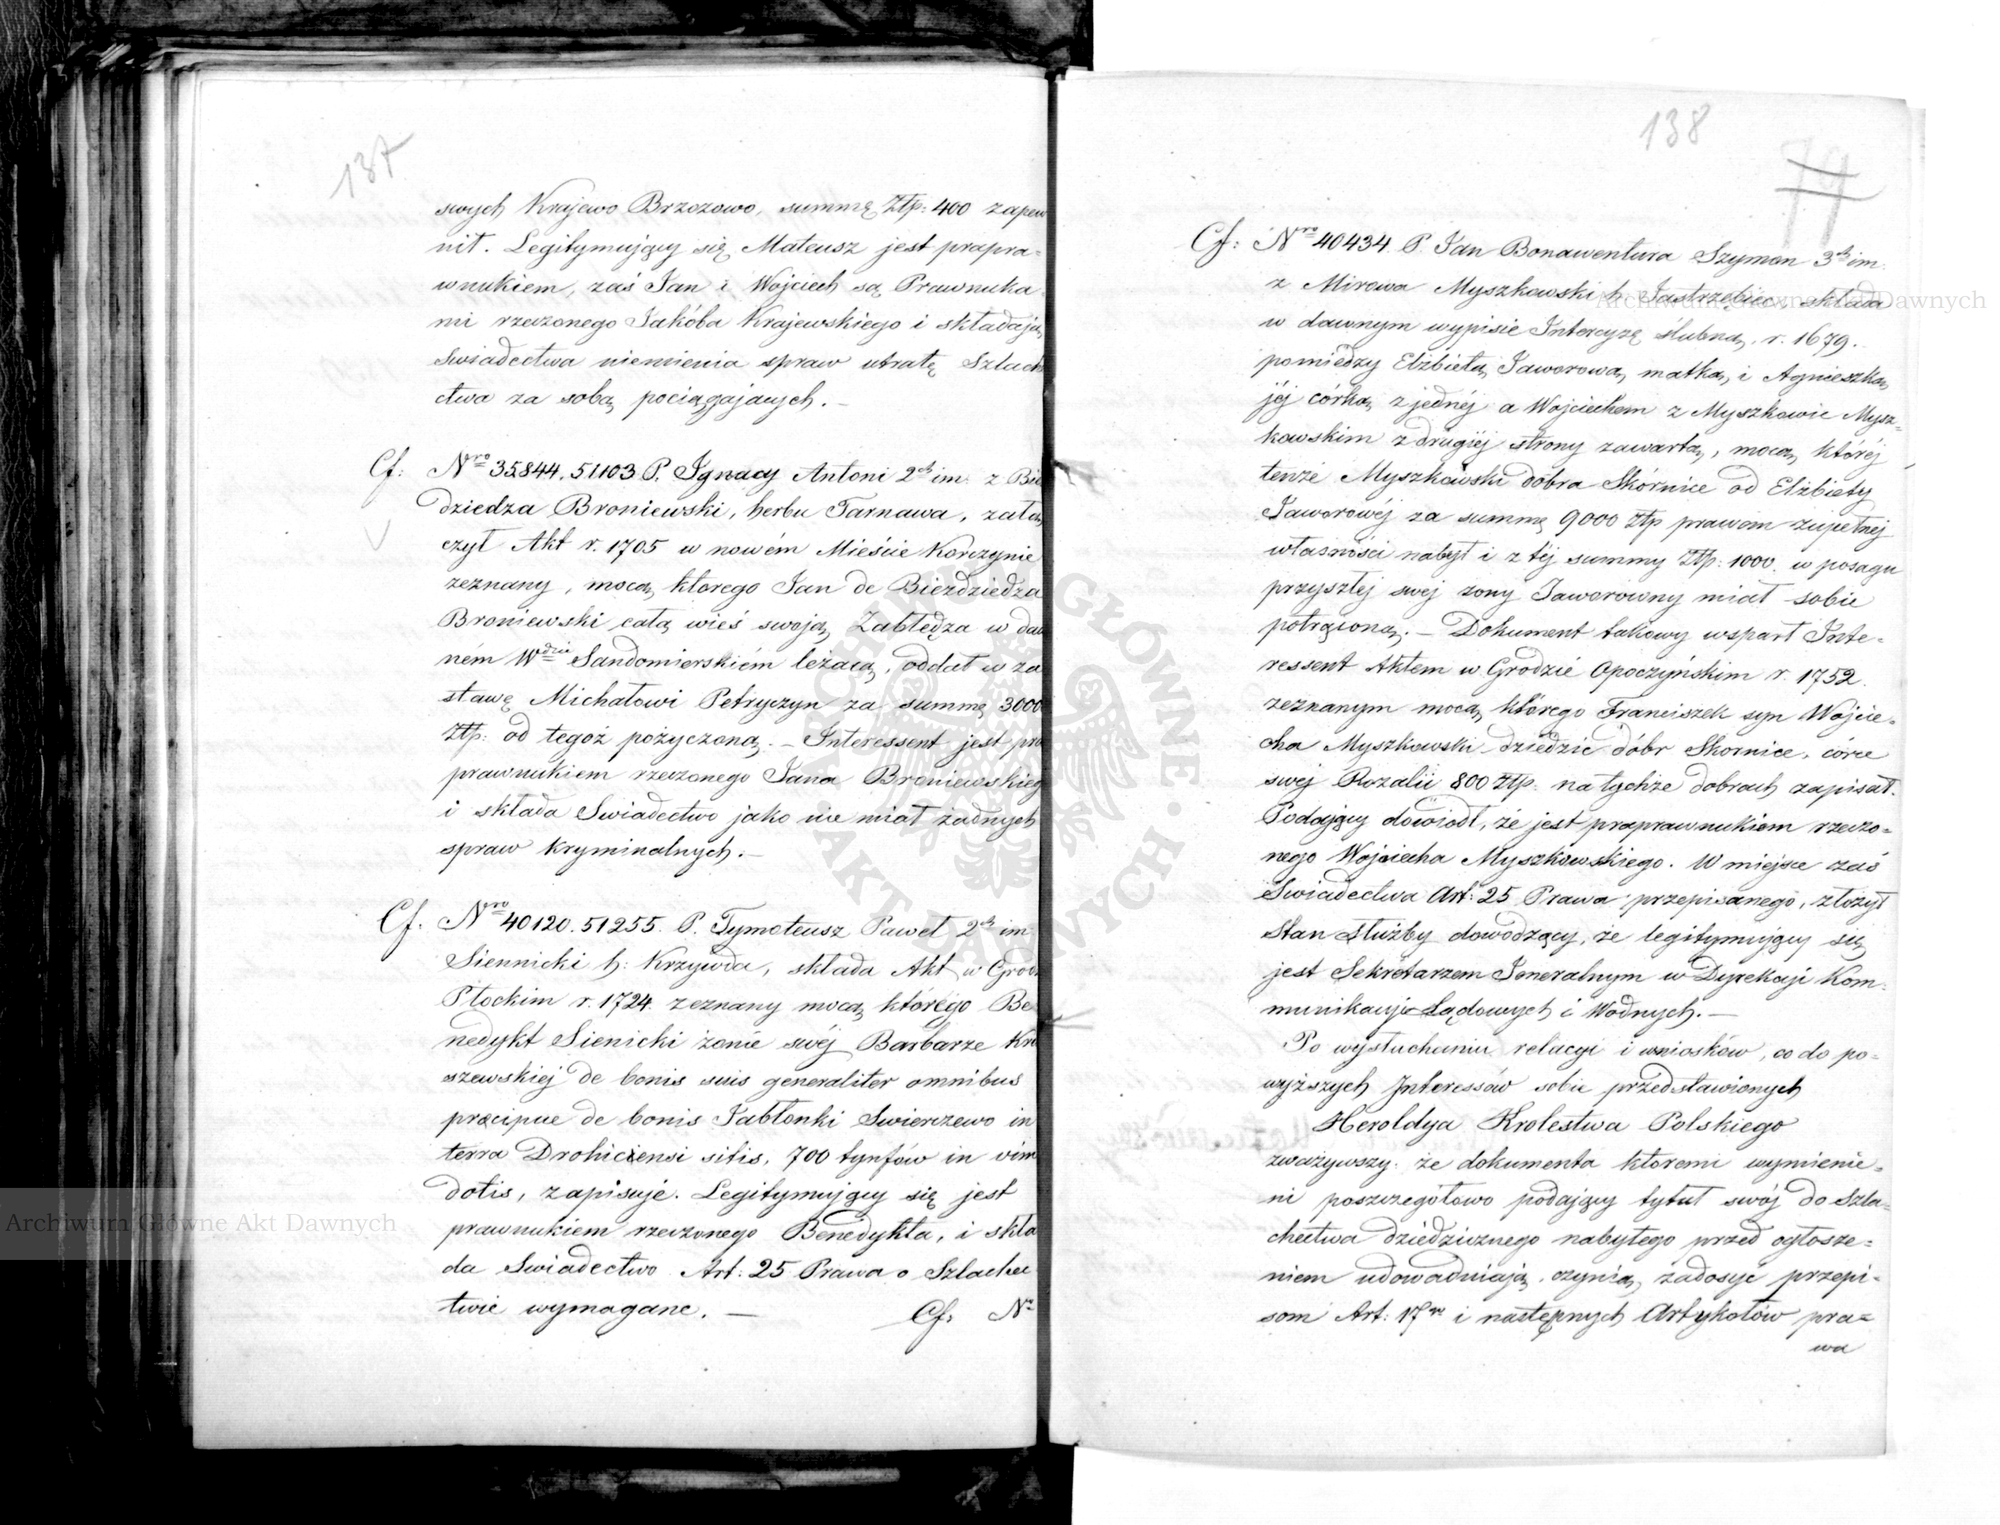 137
swych Krajewo Brzozowo, summę Złp: 400 zapew
nił. Legitymujący się Mateusz jest prapra=
wnukiem, zaś Jan i Wojciech są Prawnuka
mi rzeczonego Jakóba Krajewskiego i składają
Swiadectwa niemienia spraw utratę Szlach
ctwa za sobą pociągających. —
Cf: Nro 35844. 51103 P. Ignacy Antoni 2ch im. z Bie
dziedza Broniewski, herbu Tarnawa, załą
czył Akt r. 1705 w nowém Mieście Korczynie
zeznany, mocą ktorego Jan de Bierdziedza
Broniewski całą wieś swoją Zabłędza w da
ném Wdzie Sandomierskiém leżącą, oddał w za
stawę Michałowi Petryczyn za summę 3000
Złp: od tegoż pożyczoną. — Interessent jest pra
prawnukiem rzeczonego Jana Broniewskieg
i składa Swiadectwo jako nie miał żadnych
spraw kryminalnych. —
Cf. Nro 40120. 51255. P. Tymoteusz Paweł 2ch im
Siennicki h: Krzywda, składa Akt w Grod
Płockim r. 1724 zeznany mocą którego Be
nedykt Sienicki żonie swéj Barbarze Kra
szewskiej de bonis suis generaliter omnibus
præcipue de bonis Jabłonki Swierczewo in
terra Drohiciensi sitis, 700 tynfów in vim
dotis, zapisuje. Legitymujący się jest
prawnukiem rzeczonego Benedykta, i skła
da Swiadectwo Art: 25 Prawa o Szlachec
twie wymagane. —
Cf: Nr
138
79
Cf: Nro 40434. P. Jan Bonawentura Szymon 3ch im.
z Mirowa Myszkowski h. Jastrzębiec, składa
w dawnym wypisie Intercyzę ślubną, r. 1679.
pomiędzy Elżbietą Jaworową, matką, i Agnieszką
jéj córką z jednéj a Wojciechem z Myszkowic Mysz=
kowskim z drugiéj strony zawartą, mocą któréj
tenże Myszkowski dobra Skórnice od Elżbiety
Jaworowéj za summę 9000 złp prawem zupełnej
własności nabył i z téj summy Złp: 1000. w posagu
przyszłej swej żony Jaworowny miał sobie
potrąconą. — Dokument takowy wsparł Inte=
ressent Aktem w Grodzie Opoczyńskim r. 1752.
zeznanym mocą którego Franciszek syn Wojcie=
cha Myszkowski dziedzic dóbr Skornice, córce
swej Rozalii 800 złp. na tychże dobrach zapisał.
Podający dowiodł, że jest praprawnukiem rzeczo=
nego Wojciecha Myszkowskiego. W miejsce zaś
Swiadectwa Art: 25 Prawa przepisanego, złożył
Stan służby dowodzący, że legitymujący się
jest Sekretarzem Jeneralnym w Dyrekcji Kom=
munikacji Lądowych i Wodnych. —
Po wysłuchaniu relacyi i wniosków, co do po=
wyższych Interessów sobie przedstawionych
Heroldya Krolestwa Polskiego
zważywszy: że dokumenta któremi wymienie=
ni poszczegółowo podający tytuł swój do Szla=
chectwa dziedzicznego nabytego przed ogłosze=
niem udowadniają czynią zadosyć przepi=
som Art: 17go i następnych Artykołów pra=
wa
Archiwum Główne Akt Dawnych
Archiwum Główne Akt Dawnych
ARCHIWUM GŁÓWNE • AKT DAWNYCH •